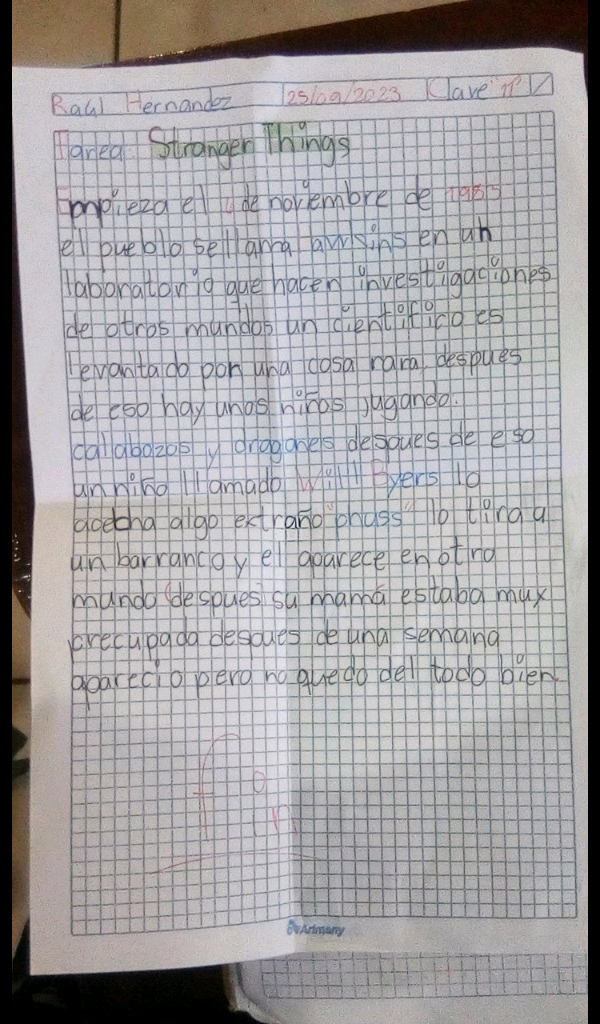 Raúl Hernandez 25/09/2023 Clave 11
Tarea: Stranger Things
Empieza el de noviembre de 1983
el pueblo se llama en un
laboratorio que hacen investigaciones
de otros mundos un cientifico es
levantado por una cosa rara, despues
de eso hay unos niños jugando.
calabozos y dragones despues de eso
un niño llamado Will Byers lo
acecha algo extraño "phass" lo tira a
un barranco y el aparece en otro
mundo despues su mamá estaba mux
precupada despues de una semana
aparecio pero no quedo del todo bien
fin
Arimany